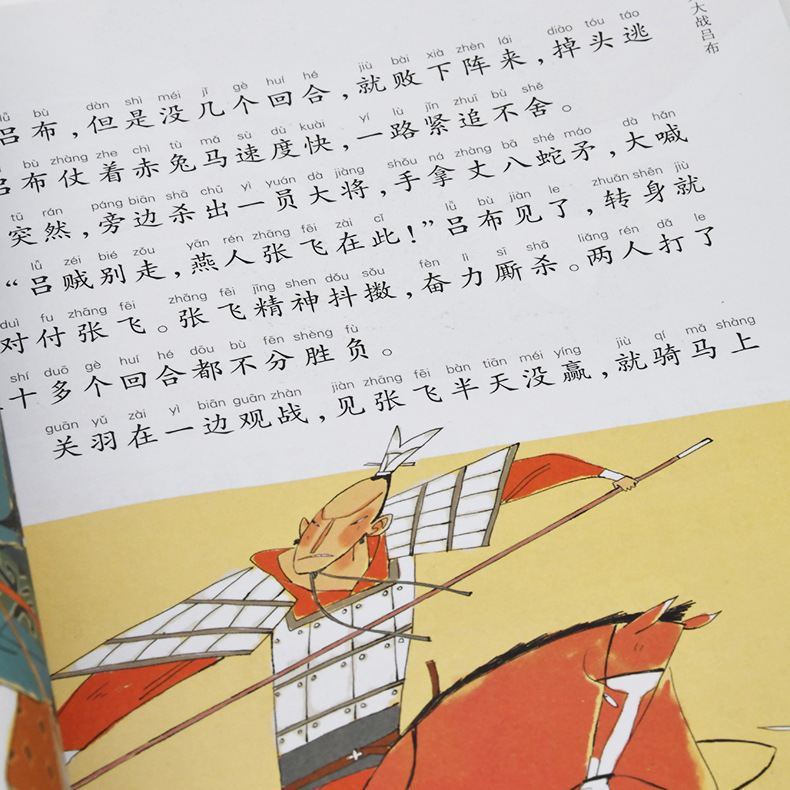 大战吕布
lǚ bù dàn shì méi jǐ gè huí hé jiù bài xià zhèn lái diào tóu táo
吕布，但是没几个回合，就败下阵来，掉头逃
bù zhàng zhe chì tù mǎ sù dù kuài yí lù jǐn zhuī bù shě
吕布仗着赤兔马速度快，一路紧追不舍。
tū rán páng biān shā chū yì yuán dà jiàng shǒu ná zhàng bā shé máo dà hǎn
突然，旁边杀出一员大将，手拿丈八蛇矛，大喊
lǚ zéi bié zǒu yān rén zhāng fēi zài cǐ lǚ bù jiàn le zhuǎn shēn jiù
“吕贼别走，燕人张飞在此！”吕布见了，转身就
duì fu zhāng fēi zhāng fēi jīng shen dǒu sǒu fèn lì sī shā liǎng rén dǎ le
对付张飞。张飞精神抖擞，奋力厮杀。两人打了
shí duō gè huí hé dōu bù fēn shèng fù
十多个回合都不分胜负。
guān yǔ zài yì biān guān zhàn jiàn zhāng fēi bàn tiān méi yíng jiù qí mǎ shàng
关羽在一边观战，见张飞半天没赢，就骑马上